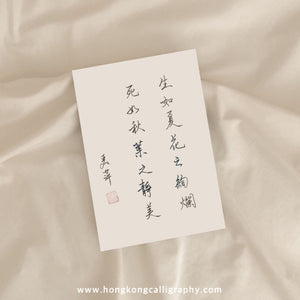 生如夏花之絢爛
死如秋葉之靜美
美萍
www.hongkongcalligraphy.com